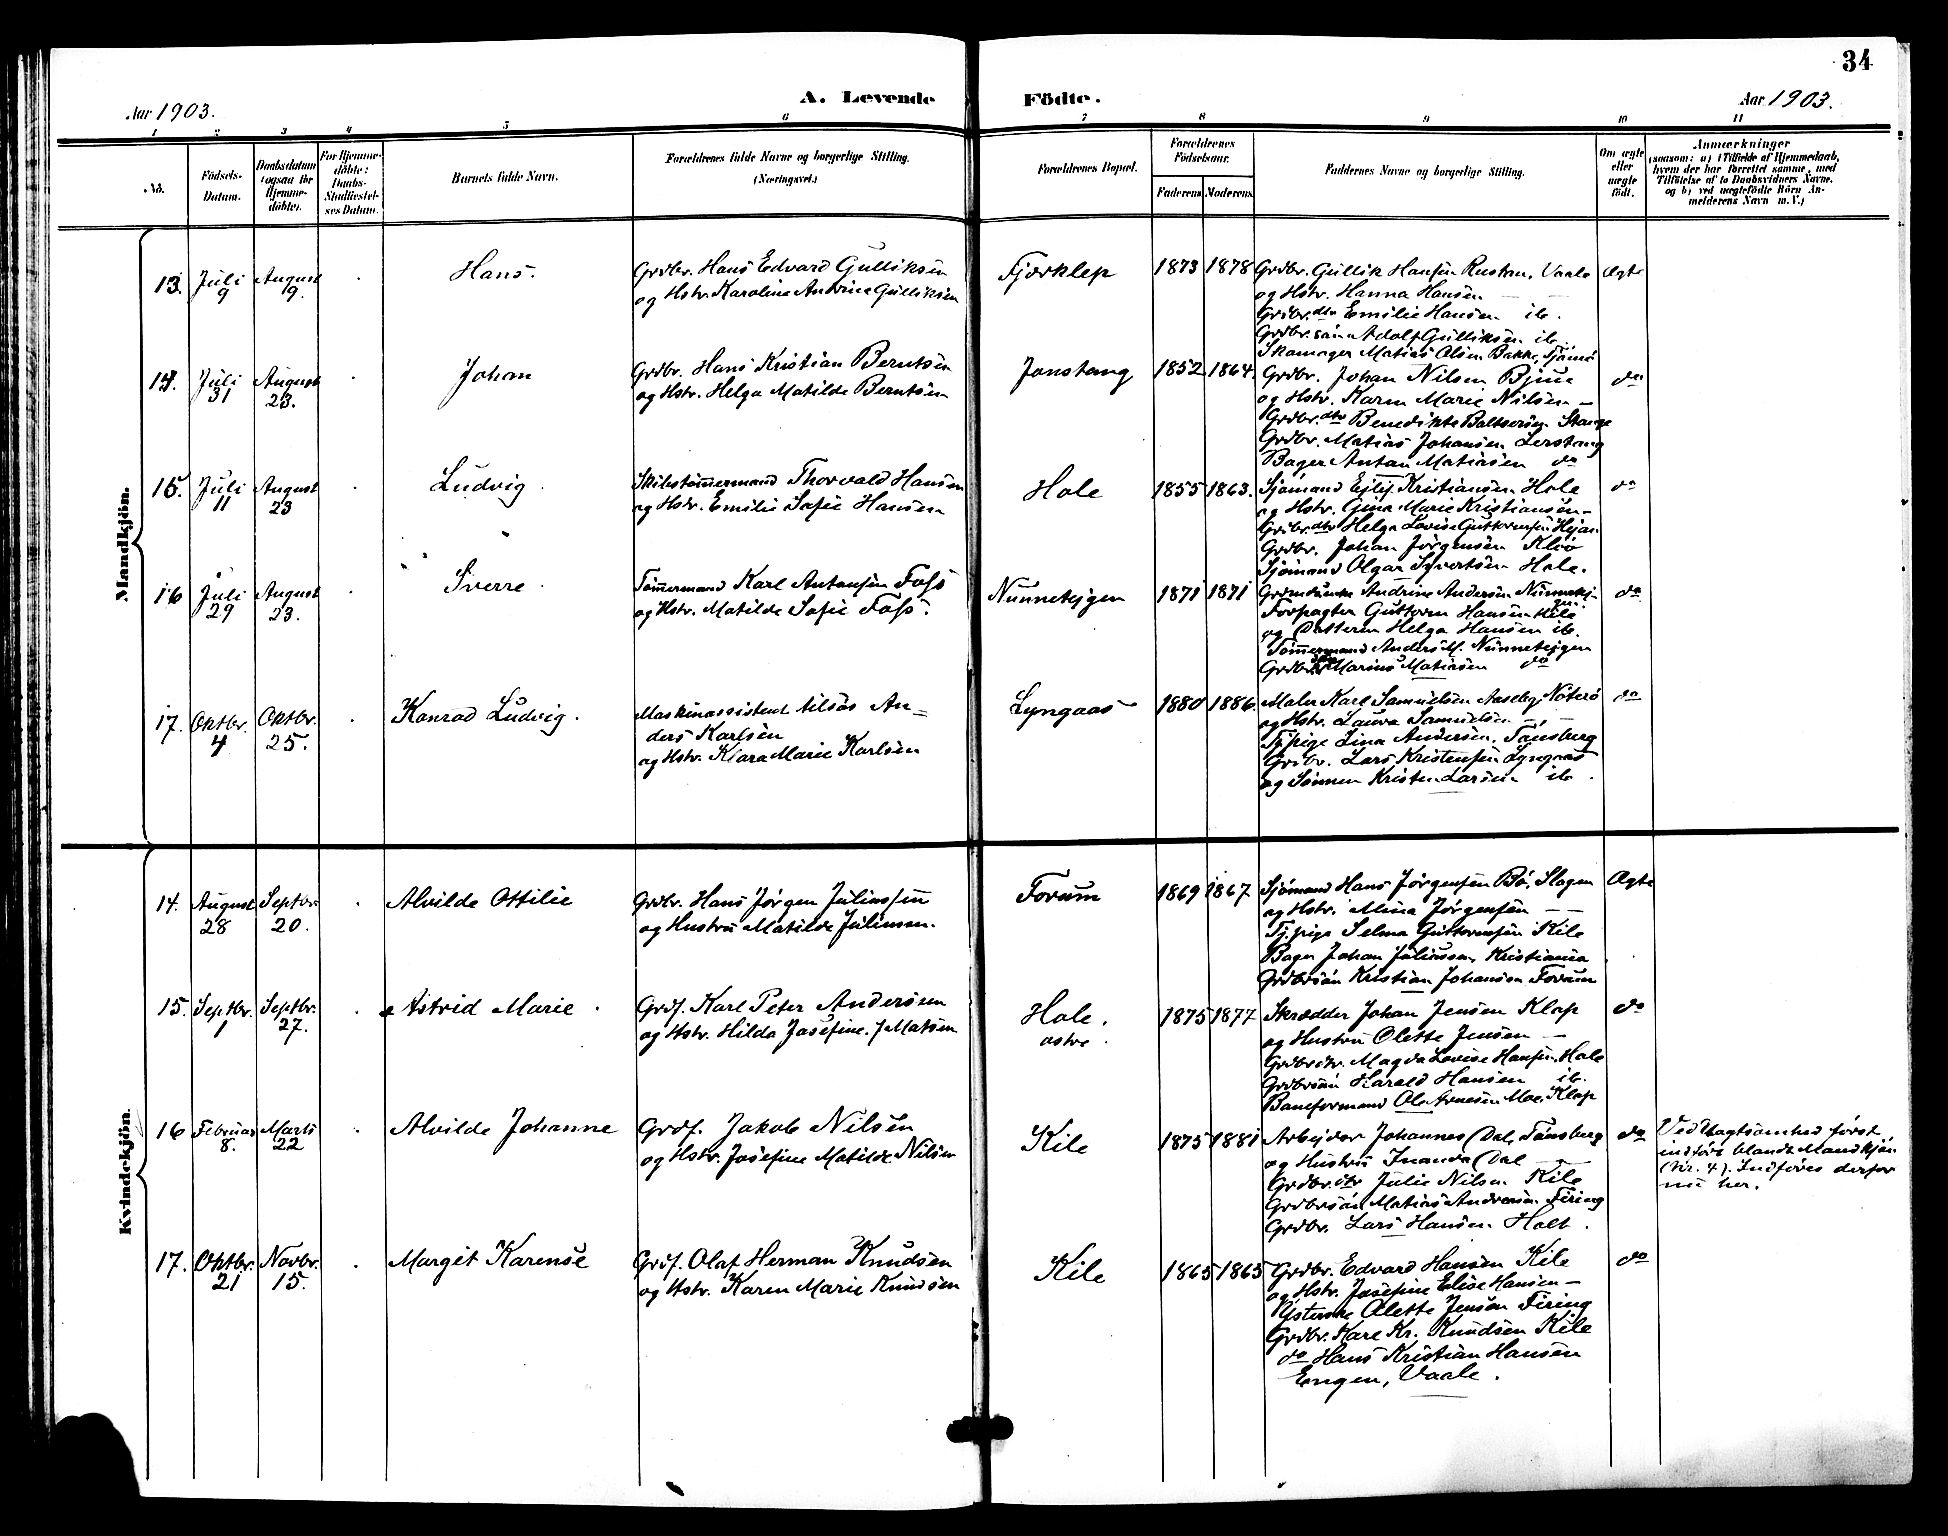 34
Aar 1903.
A. Levende Födte.
Aar 1903.
1 2 3 4 5 6 7 8 9 10 11
No.
Födsels-
Datum.
Daabsdatum
(ogsaa for
Hjemme-
döbte).
For Hjemme-
döbte:
Daabs-
Stadfæstel-
ses Datum.
Barnets fulde Navn.
Forældrenes fulde Navne og borgerlige Stilling.
(Næringsvei.)
Forældrenes Bopæl.
Forældrenes
Födselsaar.
Faderens Moderens
Faddernes Navne og borgerlige Stilling.
Om ægte
eller
uægte
födt.
Anmærkninger
(saasom: a) i Tilfælde af Hjemmedaab,
hvem der har forrettet samme, med
Tilföielse af to Daabsvidners Navne,
og b) ved uægtefödte Börn An-
melderens Navn m.V.)
Mandkjön.
13. Juli 9 August 9. Hans.
Grdbr. Hans Edvard Gulliksen
og Hstr. Karoline Andrine Gulliksen
Fjærklep 1873 1878
Grdbr. Gullik Hansen Rustan, Vaale
og Hstr. Hanna Hansen — —
Grdbr.dtr Emilie Hansen ib.
Grdbr.sön Adolf Gulliksen ib.
Skomager Matias Olsen Bakke, Tjömö
Ægte
14. Juli 31 August 23. Johan
Grdbr. Hans Kristian Berntsen
og Hstr. Helga Matilde Berntsen
Jonstang 1852 1864.
Grdbr. Johan Nilsen Bjune
og Hstr. Karen Marie Nilsen —
Grdbr.dtr Benedikte Baltsersen Stange
Grdbr. Matias Johansen Lerstang
Bager Anton Matiasen do
do
15. Juli 11 August 23 Ludvig
Skibstömmermand Thorvald Hansen
og Hstr. Emilie Sofie Hansen
Hole 1855 1863.
Sjömand Ejlif Kristiansen Hole
og Hstr. Gina Marie Kristiansen —
Grdbr.dtr Helga Lovise Guttormsen Hejan
Grdbr. Johan Jörgensen
Sjömand Olgar Syvertsen Hole.
do
16 Juli 29 August 23. Sverre
Tömmermand Karl Antonsen Foss
og Hstr. Matilde Sofie Foss.
Nunnetejgen 1871 1871
Andrine Andersen Nunnetej-
gen
Forpagter Guttorm Hansen Kile
og Datteren Helga Hansen ib.
Tömmermand Anders M. Nunnetejgen
Grdbr. Marius Matiasen do
do
17. Oktbr. 4 Oktbr. 25. Konrad Ludvig.
Maskinassistent tilsös An-
ders Karlsen
og Hstr. Klara Marie Karlsen
Lyngaas 1880 1886.
Maler Karl Samuelsen Aaseby, Nöterö
og Hstr. Laura Samuelsen — —
Tj.pige Lina Andersen, Tönsberg
Grdbr. Lars Kristensen Lyngaas
og Sönnen Kristen Larsen ib.
do
Kvindekjön.
14. August 28 Septbr. 20. Alvilde Ottilie
Grdbr. Hans Jörgen Juliussen
og Hustru Matilde Juliussen.
Forum 1869 1867
Sjömand Hans Jörgensen Bö, Slagen
og Hstr. Mina Jörgensen — —
Tj.pige Selma Guttormsen Kile
Bager Johan Juliussen, Kristiania
Grdbrsön Kristian Johansen Forum
Ægte
15. Septbr. 1 Septbr. 27. Astrid Marie
Grdf. Karl Peter Andersen
og Hstr. Hilda Josefine f. Matsen
Hole, östre 1875 1877
Skrædder Johan Jensen Klop
og Hustru Olette Jensen —
Grdbrdtr. Magda Lovise Hansen, Hole
Grdbrsön Harald Hansen ib.
Baneformand Ole Arnesen Moe, Klop
do
16 Februar 8. Marts 22 Alvilde Johanne
Grdf. Jakob Nilsen
og Hstr. Josefine Matilde Nilsen
Kile 1875 1881
Arbejder Johannes Dal, Tönsberg
og Hustru Inanda Dal —
Grdbr.dtr Julie Nilsen Kile
Grdbrsön Matias Andersen Firing
Grdbr. Lars Hansen Holt.
do
Ved Uagtsomhed först
indfört blandt Mandkjön
(Nr. 4). Indföres derfor
nu her.
17. Oktbr. 21 Novbr. 15. Margit Karense
Grdf. Olaf Herman Knudsen
og Hstr. Karen Marie Knudsen
Kile 1865 1865
Grdbr. Edvard Hansen Kile
og Hstr. Josefine Elise Hansen —
Olette Jensen Firing
Grdbr. Karl Kr. Knudsen Kile
do Hans Kristian Hansen
Engen, Vaale.
do